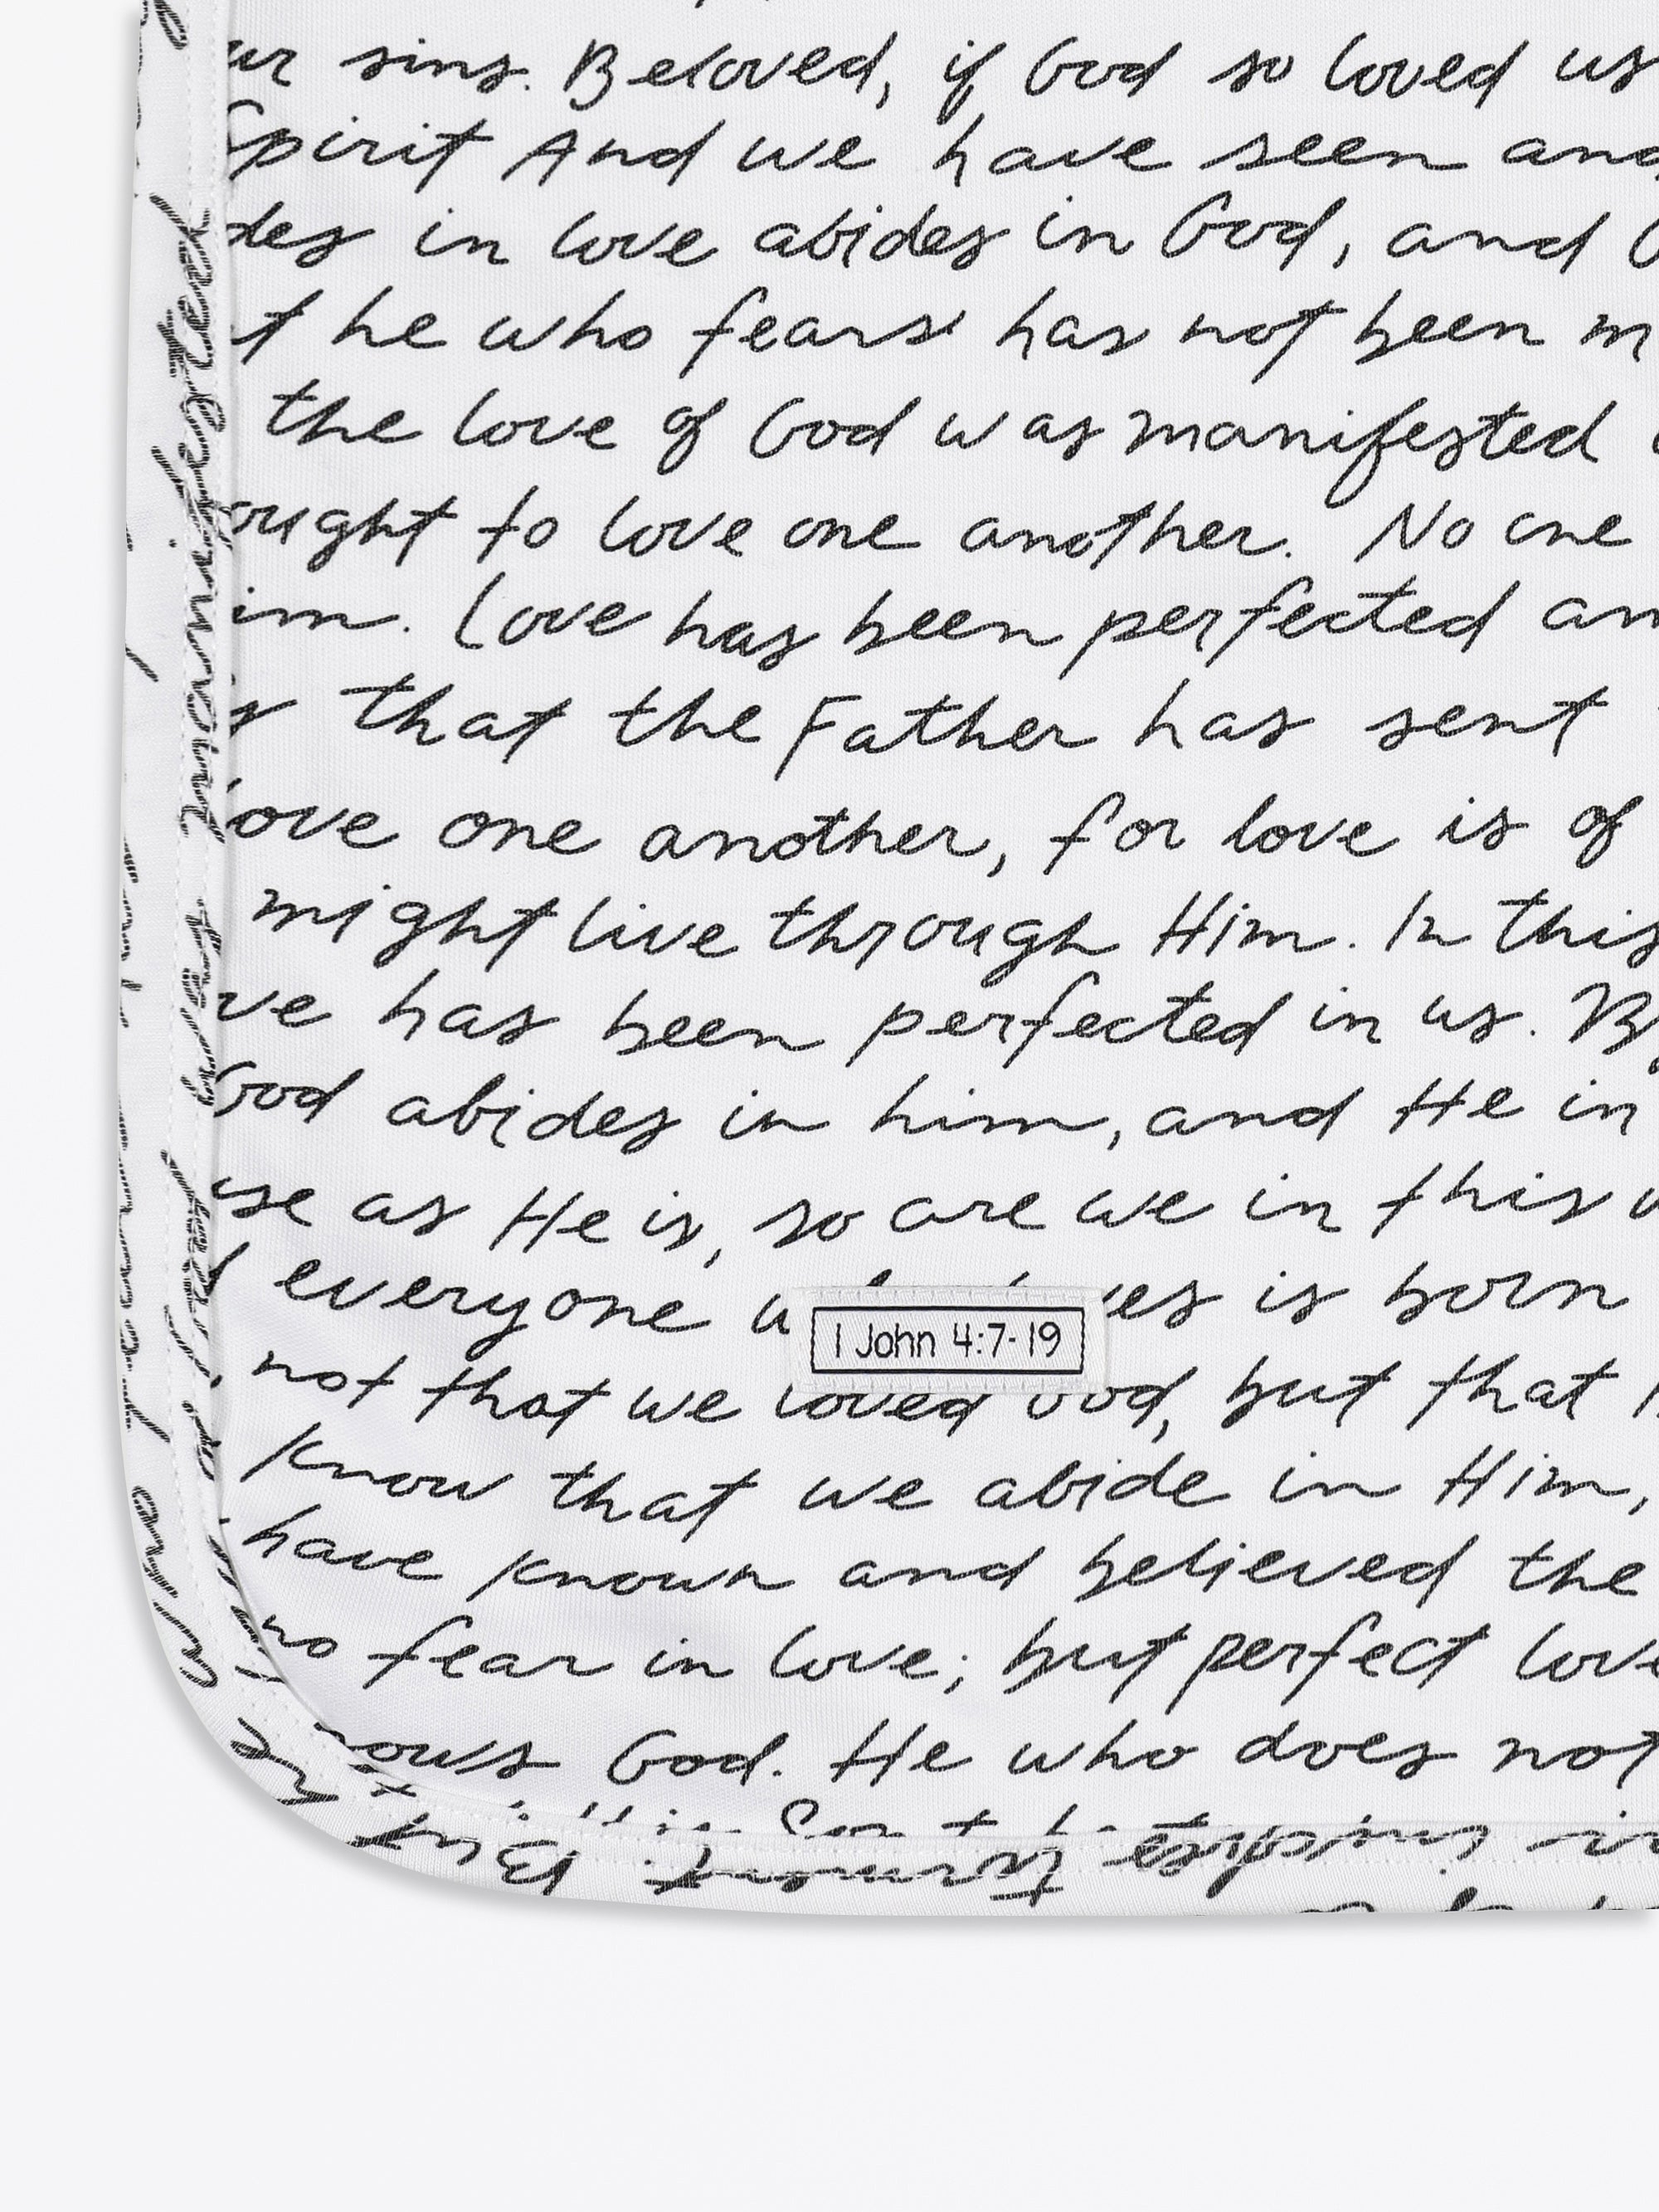 ur sins. Beloved, if God so loved us
Spirit And we have seen and
des in love abides in God, and
t he who fears has not been m
the love of God was manifested
ought to love one another. No one
im. Love has been perfected am
y that the Father has sent
love one another, for love is of
might live through Him. In this
ve has been perfected in us. By
God abides in him, and He in
use as He is, so are we in this w
d everyone w ves is born
1 John 4:7-19
not that we loved God, but that
know that we abide in Him,
have known and believed the
no fear in love; but perfect love
nows God. He who does not
manifested
was
God
involves torment. But